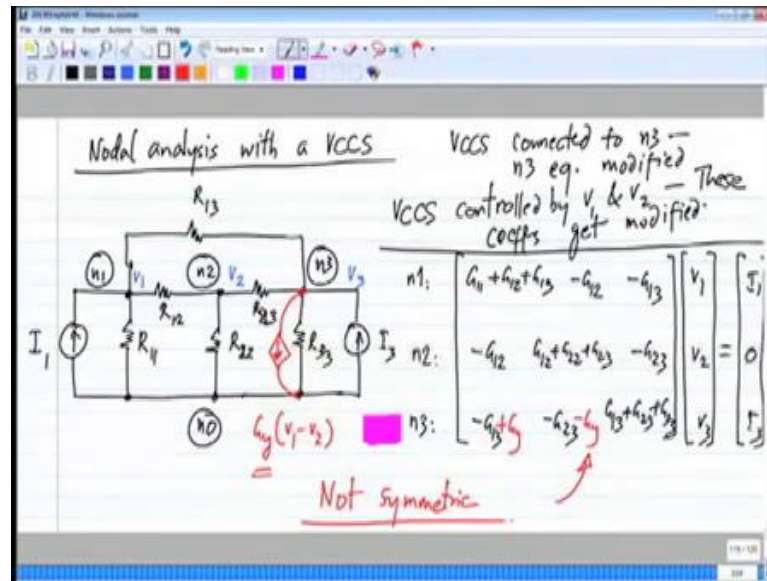 File Edit View Insert Actions Tools Help
Nodal analysis with a VCCS
VCCS connected to n3 —
n3 eq. modified
VCCS controlled by v1 & v2 — These
coeffs get modified.
R13
n1 v1 n2 v2 n3 v3
R12 R23
I1 R11 R22 R33 I3
n0
Gy(v1-v2)
n1: G11+G12+G13 -G12 -G13 v1 I1
n2: -G12 G12+G22+G23 -G23 v2 = 0
n3: -G13+Gy -G23-Gy G13+G23+G33 v3 I3
Not symmetric